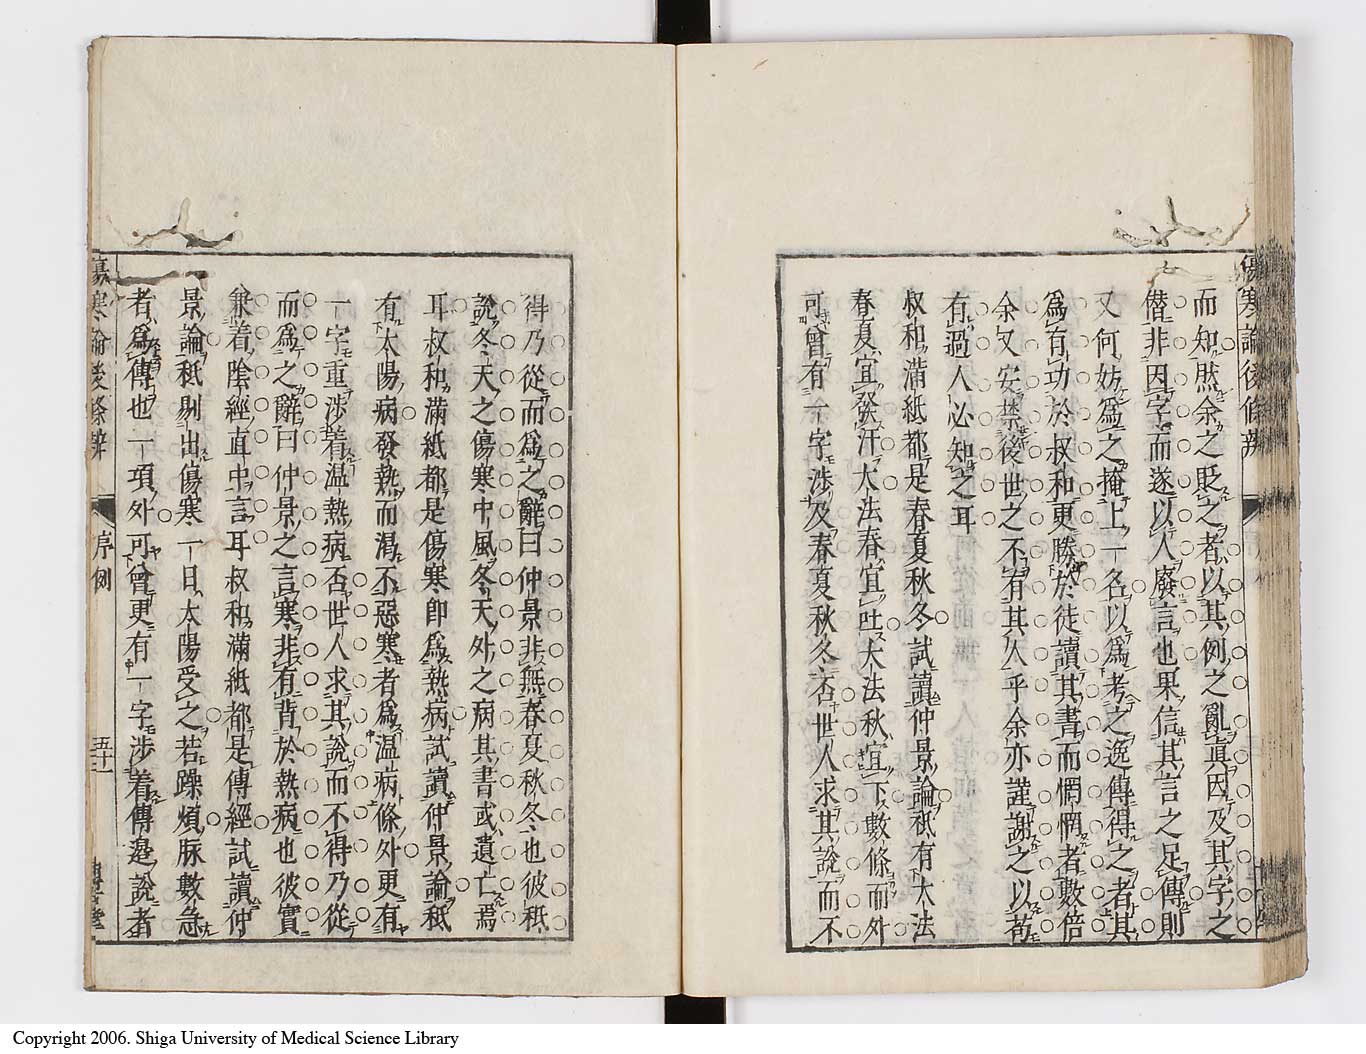 傷寒論後條辨
而知然余之貶之者以其例之亂眞因及其字之
僣非因字而遂以人廢言也果信其言之足傳則
又何妨爲之掩上一名以爲考之逸傳得之者其
爲有功於叔和更勝於徒讀其書而惘惘者數倍
余又安禁後世之不有其人乎余亦謹謝之以苟
有過人必知之耳
叔和滿紙都是春夏秋冬試讀仲景論秪有大法
春夏宜發汗大法春宜吐大法秋宜下數條而外
可曾有一字涉及春夏秋冬否世人求其說而不
得乃從而爲之辭曰仲景非無春夏秋冬也彼秪
說冬天之傷寒中風冬天外之病其書或遺亡焉
耳叔和滿紙都是傷寒卽爲熱病試讀仲景論秪
有太陽病發熱而渴不惡寒者爲温病條外更有
一字重涉着温熱病否世人求其說而不得乃從
而爲之辭曰仲景之言寒非有背於熱病也彼實
兼着陰經直中言耳叔和滿紙都是傳經試讀仲
景論秪剔出傷寒一日太陽受之若躁煩脉數急
者爲傳也一項外可曾更有一字涉着傳邉說者
傷寒論後條辨 序例 五十一
Copyright 2006. Shiga University of Medical Science Library